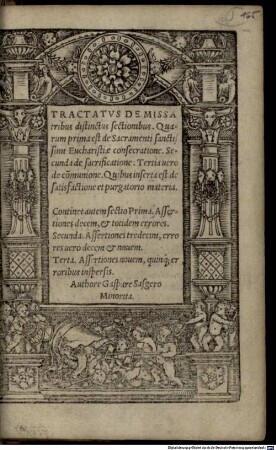 TRACTATVS DE MISSA
tribus distinctus sectionibus. Qua⸗
rum prima est de Sacramenti sancti⸗
simi Eucharistiæ consecratione. Se⸗
cunda de sacrificatione. Tertia uero
de cõmunione. Quibus inserta est de
satisfactione et purgatorio materia.
Continet autem sectio Prima. Asser⸗
tiones decem, & totidem errores.
Secunda. Assertiones tredecim, erro
res uero decem & nouem.
Tertia. Assertiones nouem, quinq; er
roribus inspersis.
Authore Gaspare Sasgero
Minorita.